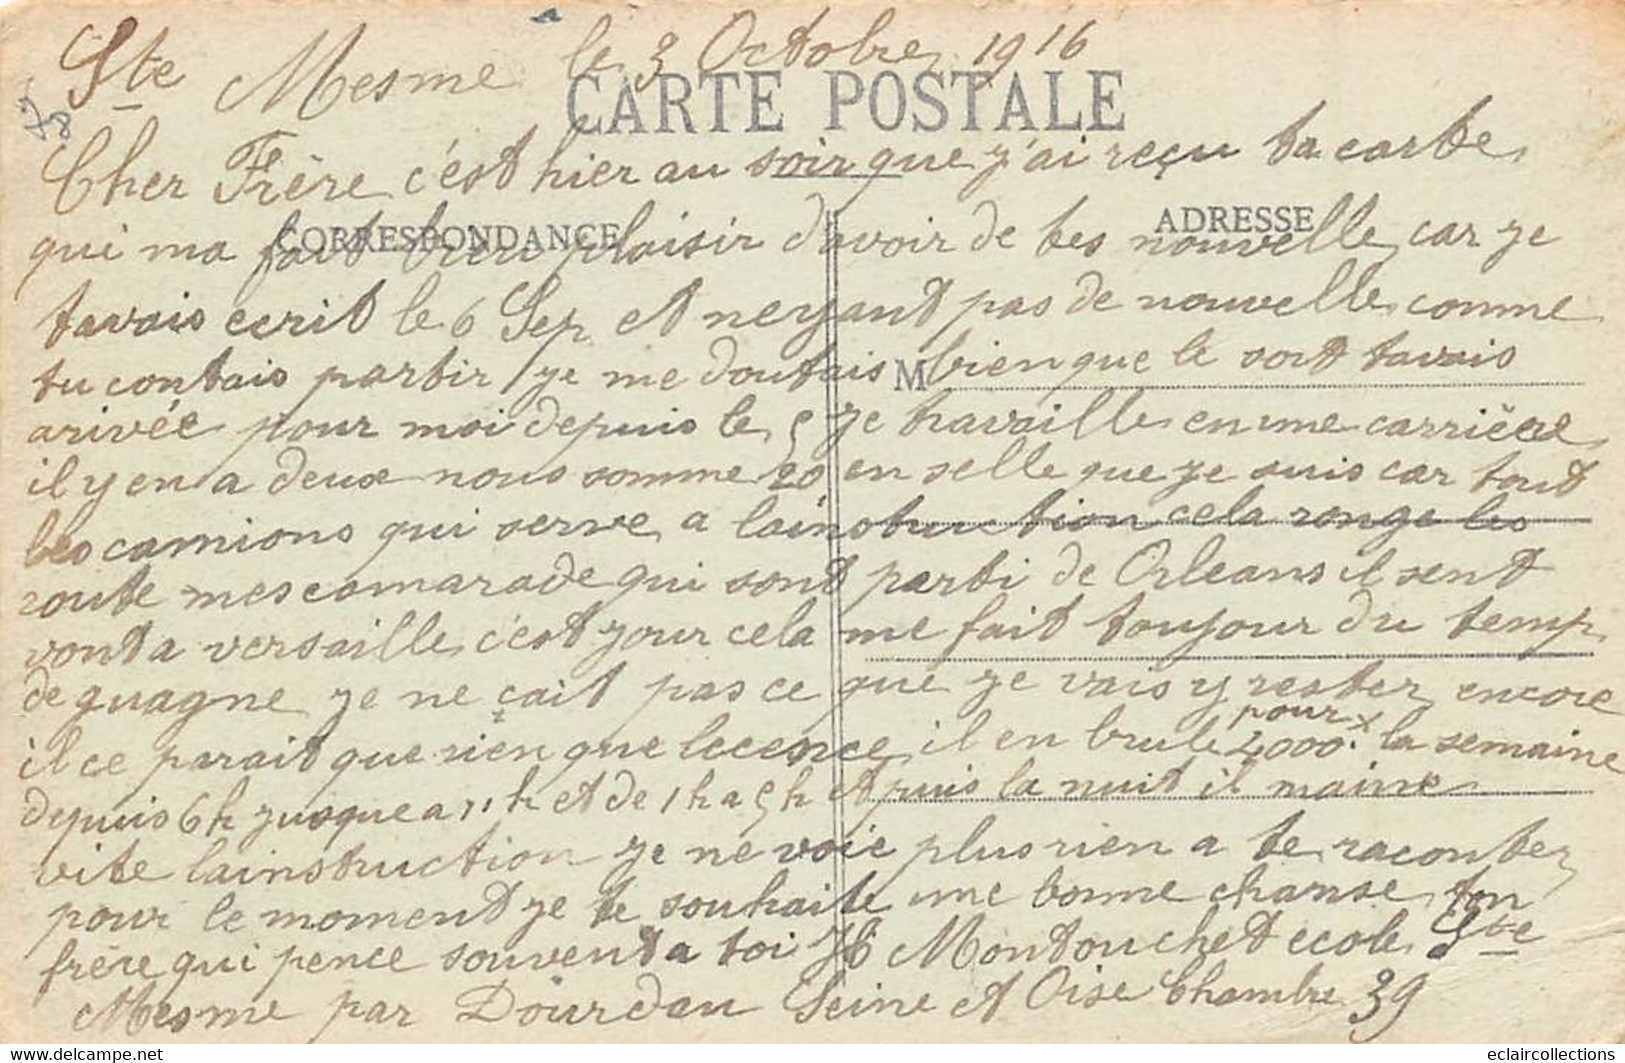 Ste Mesme le 3 Octobre 1916
CARTE POSTALE
Cher Frère c'est hier au soir que j'ai reçu ta carte
CORRESPONDANCE
ADRESSE
qui ma fait bien plaisir d'avoir de tes nouvelle, car je
tavais ecrit le 6 Sep et neyant pas de nouvelle comme
tu contais partir je me doutais bien que le sort tavais
M
arivée pour moi depuis le 5 je travaille en une carrière
il y en a deux nous somme 20 en selle que je suis car tout
les camions qui serve a lainstruction cela ronge les
route mes camarade qui sont parti de Orleans il sent
vont a versaille c'est jour cela me fait toujour du temp
de guagne je ne çait pas ce que je vais y rester encore
il ce parait que rien que lecence il en brule pour 4000. la semaine
depuis 6h jusque a 11h et de 1h a 5h et puis la nuit il maine
vite lainstruction je ne voie plus rien a te raconter
pour le moment je te souhaite une bonne chanse ton
frère qui pence souvent a toi H Montouchet ecole Ste
Mesme par Dourdan Seine et Oise Chambre 39
eclaircollections